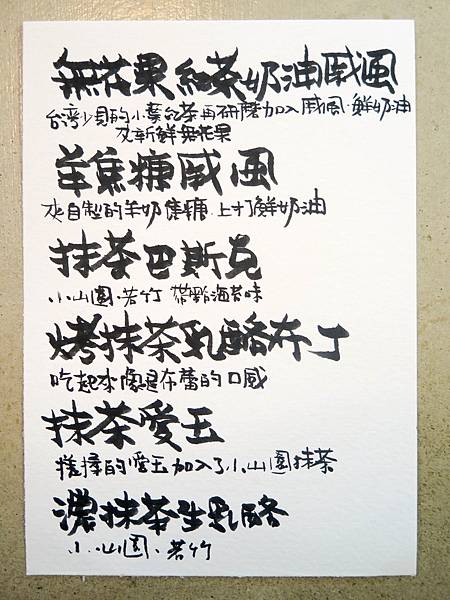 無花果紅茶奶油戚風
台灣少見的小葉紅茶再研磨加入戚風.鮮奶油
及新鮮無花果
羊焦糖戚風
夾自製的羊奶焦糖.上打鮮奶油
抹茶巴斯克
小山園.若竹 帶點海苔味
烤抹茶乳酪布丁
吃起來像是布蕾的口感
抹茶愛玉
搓揉的愛玉加入了小山園抹茶
濃抹茶生乳酪
小山園.若竹